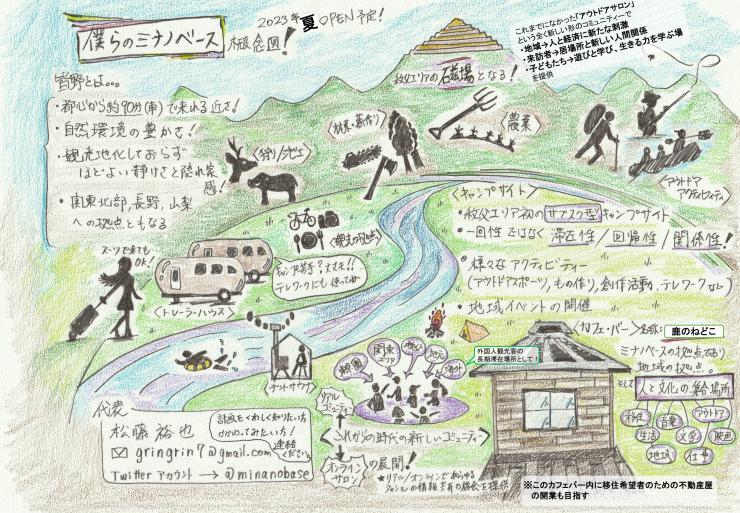 僕らのミナノベース 概念図!
2023年 夏 OPEN予定!
これまでになかった「アウトドアサロン」
という全く新しい形のコミュニティーで
・地域→人と経済に新たな刺激
・来訪者→居場所と新しい人間関係
・子どもたち→遊びと学び、生きる力を学ぶ場
を提供
皆野とは…
・都心から約90分(車)で来れる近さ!
・自然環境の豊かさ!
・観光地化しておらず
ほどよい静けさと隠れ家感!
・関東北部,長野,山梨
への拠点ともなる
秩父エリアの磁場となる!
<狩り/ジビエ>
<林業・薪作り>
<農業>
<アウトドア
アクティビティ>
<観光の拠点>
スーツで来ても
OK!
キャンプ苦手?大丈夫!!
テレワークにも使ってね
<トレーラーハウス>
<キャンプサイト>
・秩父エリア初のサブスク型キャンプサイト
・一回性ではなく滞在性/回帰性/関係性!
・様々なアクティビティー
(アウトドアスポーツ,もの作り,創作活動,テレワークなど)
・地域イベントの開催
テントサウナ
都圏
関東エリア
秩父
地元
海外
外国人観光客の
長期滞在場所として!
<カフェ・バー>名称:鹿のねどこ
ミナノベースの拠点であり
地域の拠点。
そして人と文化の集合場所
移住
音楽
アウトドア
生活
文学
映画
地域
仕事
代表
松藤 裕也
✉ gringrin7@gmail.com
Twitterアカウント → @minanobase
計画をくわしく知りたい方
かかわってみたい方!
連絡ください
リアルコミュニティー
<これからの時代の新しいコミュニティー>
オンラインサロン
の展開!
★リアル/オンラインであらゆる
ジャンルの情報共有の機会を提供
※このカフェバー内に移住希望者のための不動産屋
の開業も目指す